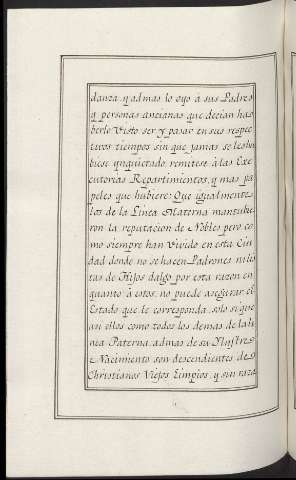 danza, y admas lo oyo à sus Padres
y personas ancianas que decian hav
berlo Visto ser y pasar en sus respec
tivos tiempos sin que jamas se les hu
biese ynquietado, remitese à las Exe
cutorias Repartimientos, y mas pa
peles que hubiere: Que igualmente
los de la Linea Materna mantubie
ron la reputacion de Nobles pero co
mo siempre han Vivido en esta Ciu
dad donde no se hacen Padrones ni lis
tas de Hijos dalgo por esta razon en
quanto à estos, no puede asegurar el
Estado que le corresponda, solo si que
an ellos como todos los demas de la li
nea Paterna, admas de su Ylustre
Nacimiento son descendientes de
Christianos Viejos Limpios, y sin raza